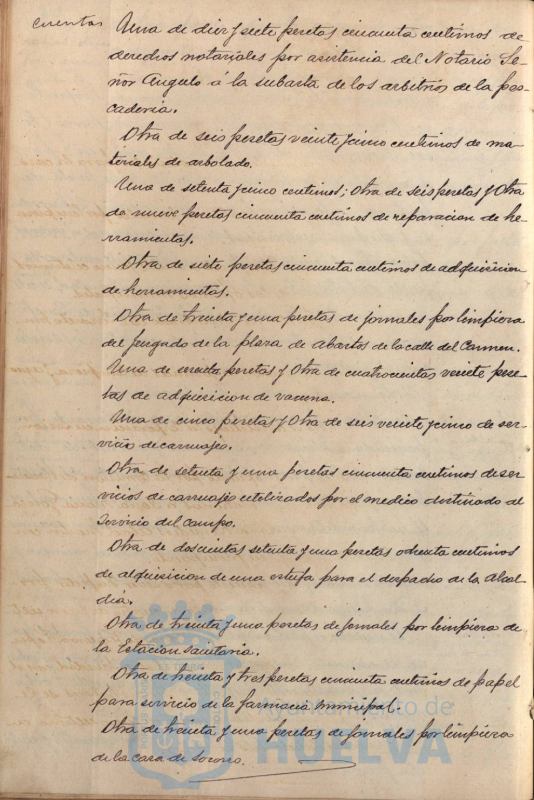 Cuentas
Una de diez y siete pesetas cincuenta centimos de
derechos notariales por asistencia del Notario Se-
ñor Angulo á la subasta de los arbitrios de la pes-
caderia.
Otra de seis pesetas veinte y cinco centimos de ma-
teriales de arbolado.
Una de setenta y cinco centimos; otra de seis pesetas y otra
de nueve pesetas cincuenta centimos de reparacion de he-
rramientas.
Otra de siete pesetas cincuenta centimos de adquisicion
de herramientas.
Otra de treinta y una pesetas de jornales por limpieza
del juzgado de la plaza de abastos de la calle del Carmen.
Una de pesetas y otra de cuatrocientas veinte pese-
tas de adquisicion de vacuna.
Una de cinco pesetas y otra de seis veinte y cinco de ser-
vicio de carruajes.
Otra de setenta y una pesetas cincuenta centimos de ser-
vicios de carruajes utilizados por el medico destinado al
servicio del campo.
Otra de doscientas setenta y una pesetas ochenta centimos
de adquisicion de una estufa para el despacho de la Alcal-
dia.
Otra de treinta y una pesetas de jornales por limpieza de
la Estacion Sanitaria.
Otra de treinta y tres pesetas cincuenta centimos de papel
para servicio de la farmacia municipal.
Otra de treinta y una pesetas de jornales por limpieza
de la casa de socorro.
Ayuntamiento de
HUELVA